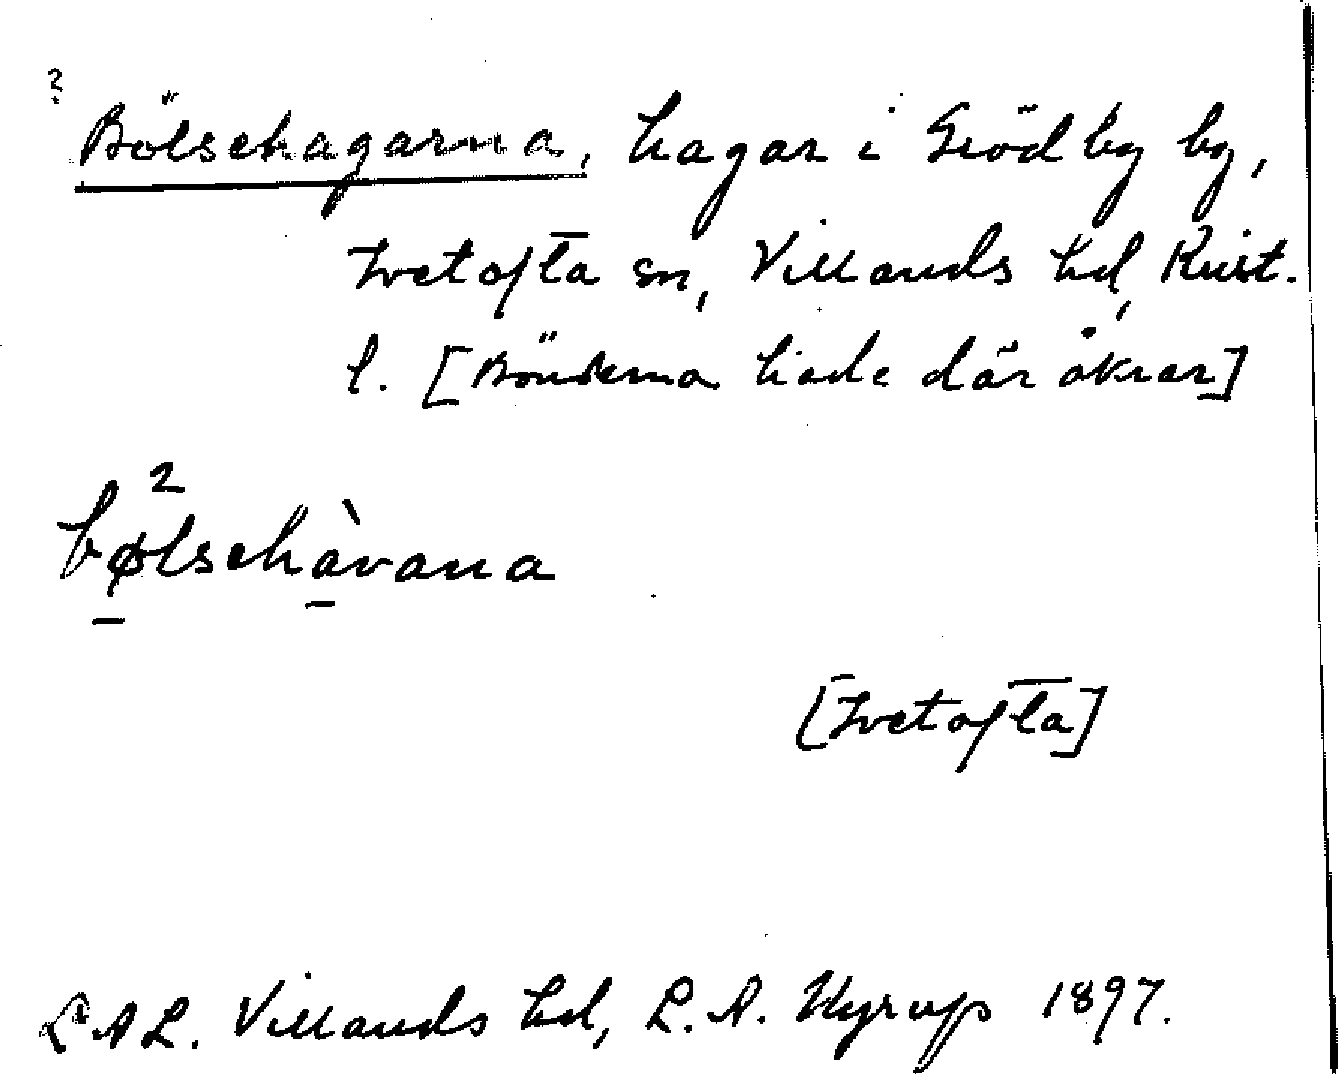 ? Bölsehagarna, hagar i Grödby by,
Ivetofta sn, Villands hd, Krist.
l. [Bönderna hade där åkrar]
2
bølsehàvana
[Ivetofta]
LAL. Villands hd, L. A. Nyrup 1897.